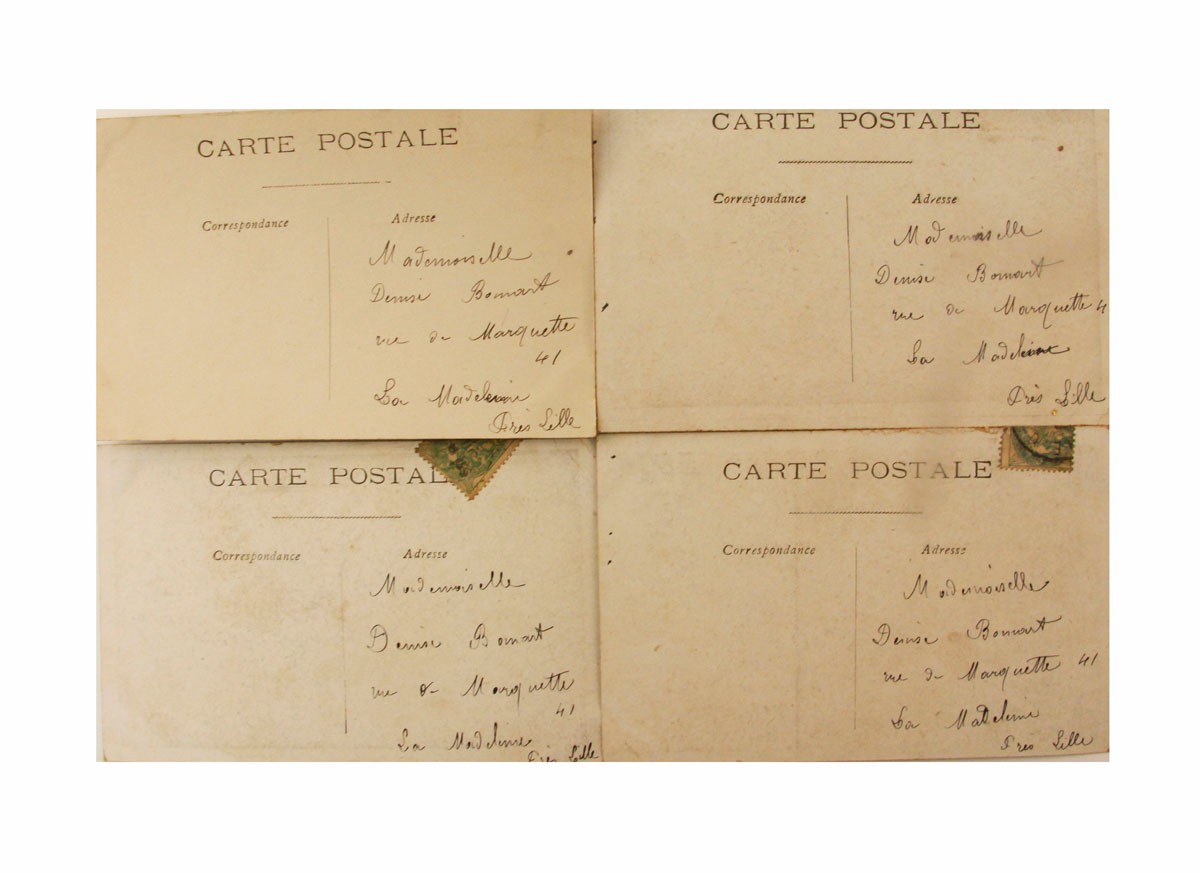 CARTE POSTALE
Correspondance
Adresse
Mademoiselle
Denise Bomart
rue de Marquette
41
La Madeleine
Près Lille
CARTE POSTALE
Correspondance
Adresse
Mademoiselle
Denise Bomart
rue de Marquette 4
La Madeleine
Près Lille
CARTE POSTAL
Correspondance
Adresse
Mademoiselle
Denise Bomart
rue de Marquette
41
La Madeleine
Près Lille
CARTE POSTALE
Correspondance
Adresse
Mademoiselle
Denise Bomart
rue de Marquette 41
La Madeleine
Près Lille